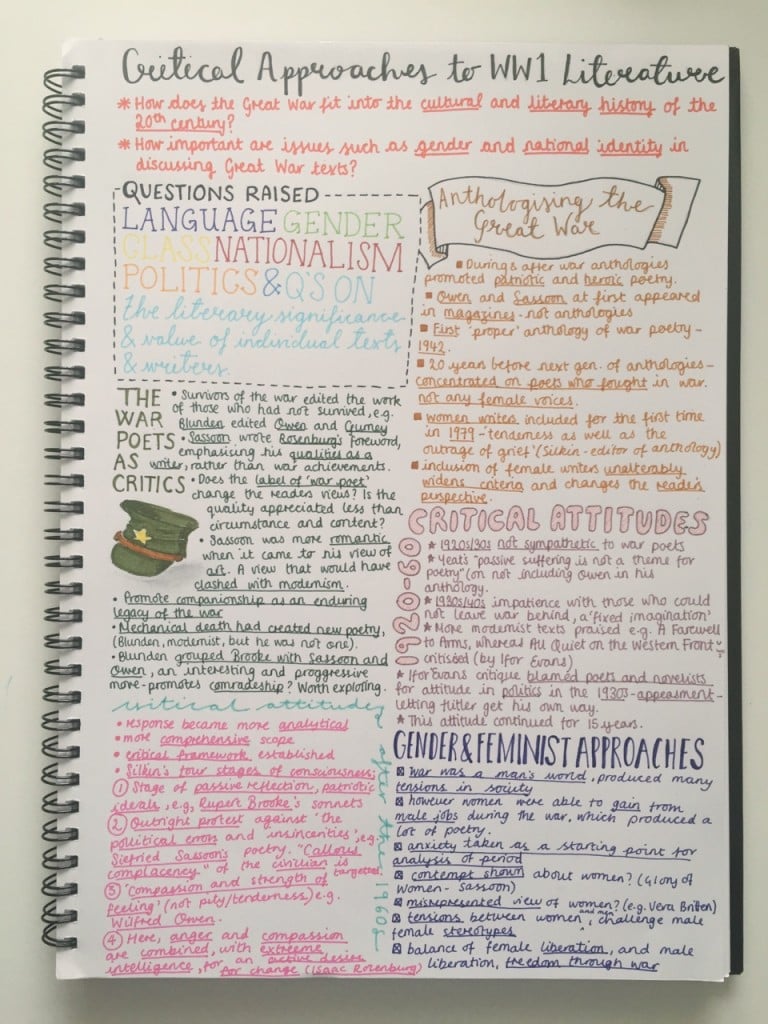 Critical Approaches to WW1 Literature
* How does the Great War fit into the cultural and literary history of the
20th century?
* How important are issues such as gender and national identity in
discussing Great War texts?
QUESTIONS RAISED
LANGUAGE GENDER
CLASS NATIONALISM
POLITICS & Q'S ON
the literary significance
& value of individual texts
& writers.
Anthologising the
Great War
▪ During & after war anthologies
promoted patriotic and heroic poetry.
▪ Owen and Sassoon at first appeared
in magazines - not anthologies
▪ First 'proper' anthology of war poetry -
1942.
▪ 20 years before next gen. of anthologies -
concentrated on poets who fought in war.
not any female voices.
▪ women writers included for the first time
in 1979 - 'tenderness as well as the
outrage of grief' (Silkin - editor of anthology)
▪ inclusion of female writers unalterably
widens criteria and changes the reader's
perspective.
THE
WAR
POETS
AS
CRITICS
• Survivors of the war edited the work
of those who had not survived, e.g.
Blunden edited Owen and Gurney
• Sassoon wrote Rosenburg's foreword,
emphasising his qualities as a
writer, rather than war achievements.
• Does the label of 'war poet'
change the readers views? Is the
quality appreciated less than
circumstance and content?
• Sassoon was more romantic
when it came to his view of
art. A view that would have
clashed with modernism.
• Promote companionship as an enduring
legacy of the war
• Mechanical death had created new poetry,
(Blunden, modernist, but he was not one).
• Blunden grouped Brooke with Sassoon and
Owen, an interesting and proggressive
more - promotes comradeship? Worth exploring.
CRITICAL ATTITUDES
1920-60
★ 1920s/30s not sympathetic to war poets
★ Yeat's "passive suffering is not a theme for
poetry" (on not including Owen in his
anthology.
★ 1930s/40s impatience with those who could
not leave war behind, a 'fixed imagination'
★ More modernist texts praised e.g. A Farewell
to Arms, whereas All Quiet on the Western Front
critisèd (by Ifor Evans)
★ Ifor Evans critique blamed poets and novelists
for attitude in politics in the 1930s - appeasment -
letting Hitler get his own way.
★ This attitude continued for 15 years.
critical attitudes after the 1960s
• response became more analytical
• more comprehensive scope
• critical framework established
• Silkin's four stages of consciousness;
① Stage of passive reflection, patriotic
ideals, e.g, Rupert Brooke's sonnets
② Outright protest against 'the
political errors and insincerities', e.g.
Siefried Sassoon's poetry. "Callous
complacency" of the civilian is
targeted.
③ 'Compassion and strength of
feeling' (not pity/tenderness) e.g.
Wilfred Owen.
④ Here, anger and compassion
are combined, with extreme
intelligence, for an active desire
for change (Isaac Rosenburg)
GENDER & FEMINIST APPROACHES
☒ war was a man's world, produced many
tensions in society
☒ however women were able to gain from
male jobs during the war, which produced a
lot of poetry.
☒ anxiety taken as a starting point for
analysis of period
☒ contempt shown about women? (Glory of
Women - Sassoon)
☒ misrepresented view of women? (e.g. Vera Britten)
☒ tensions between women and men, challenge male
female stereotypes
☒ balance of female liberation, and male
liberation, freedom through war